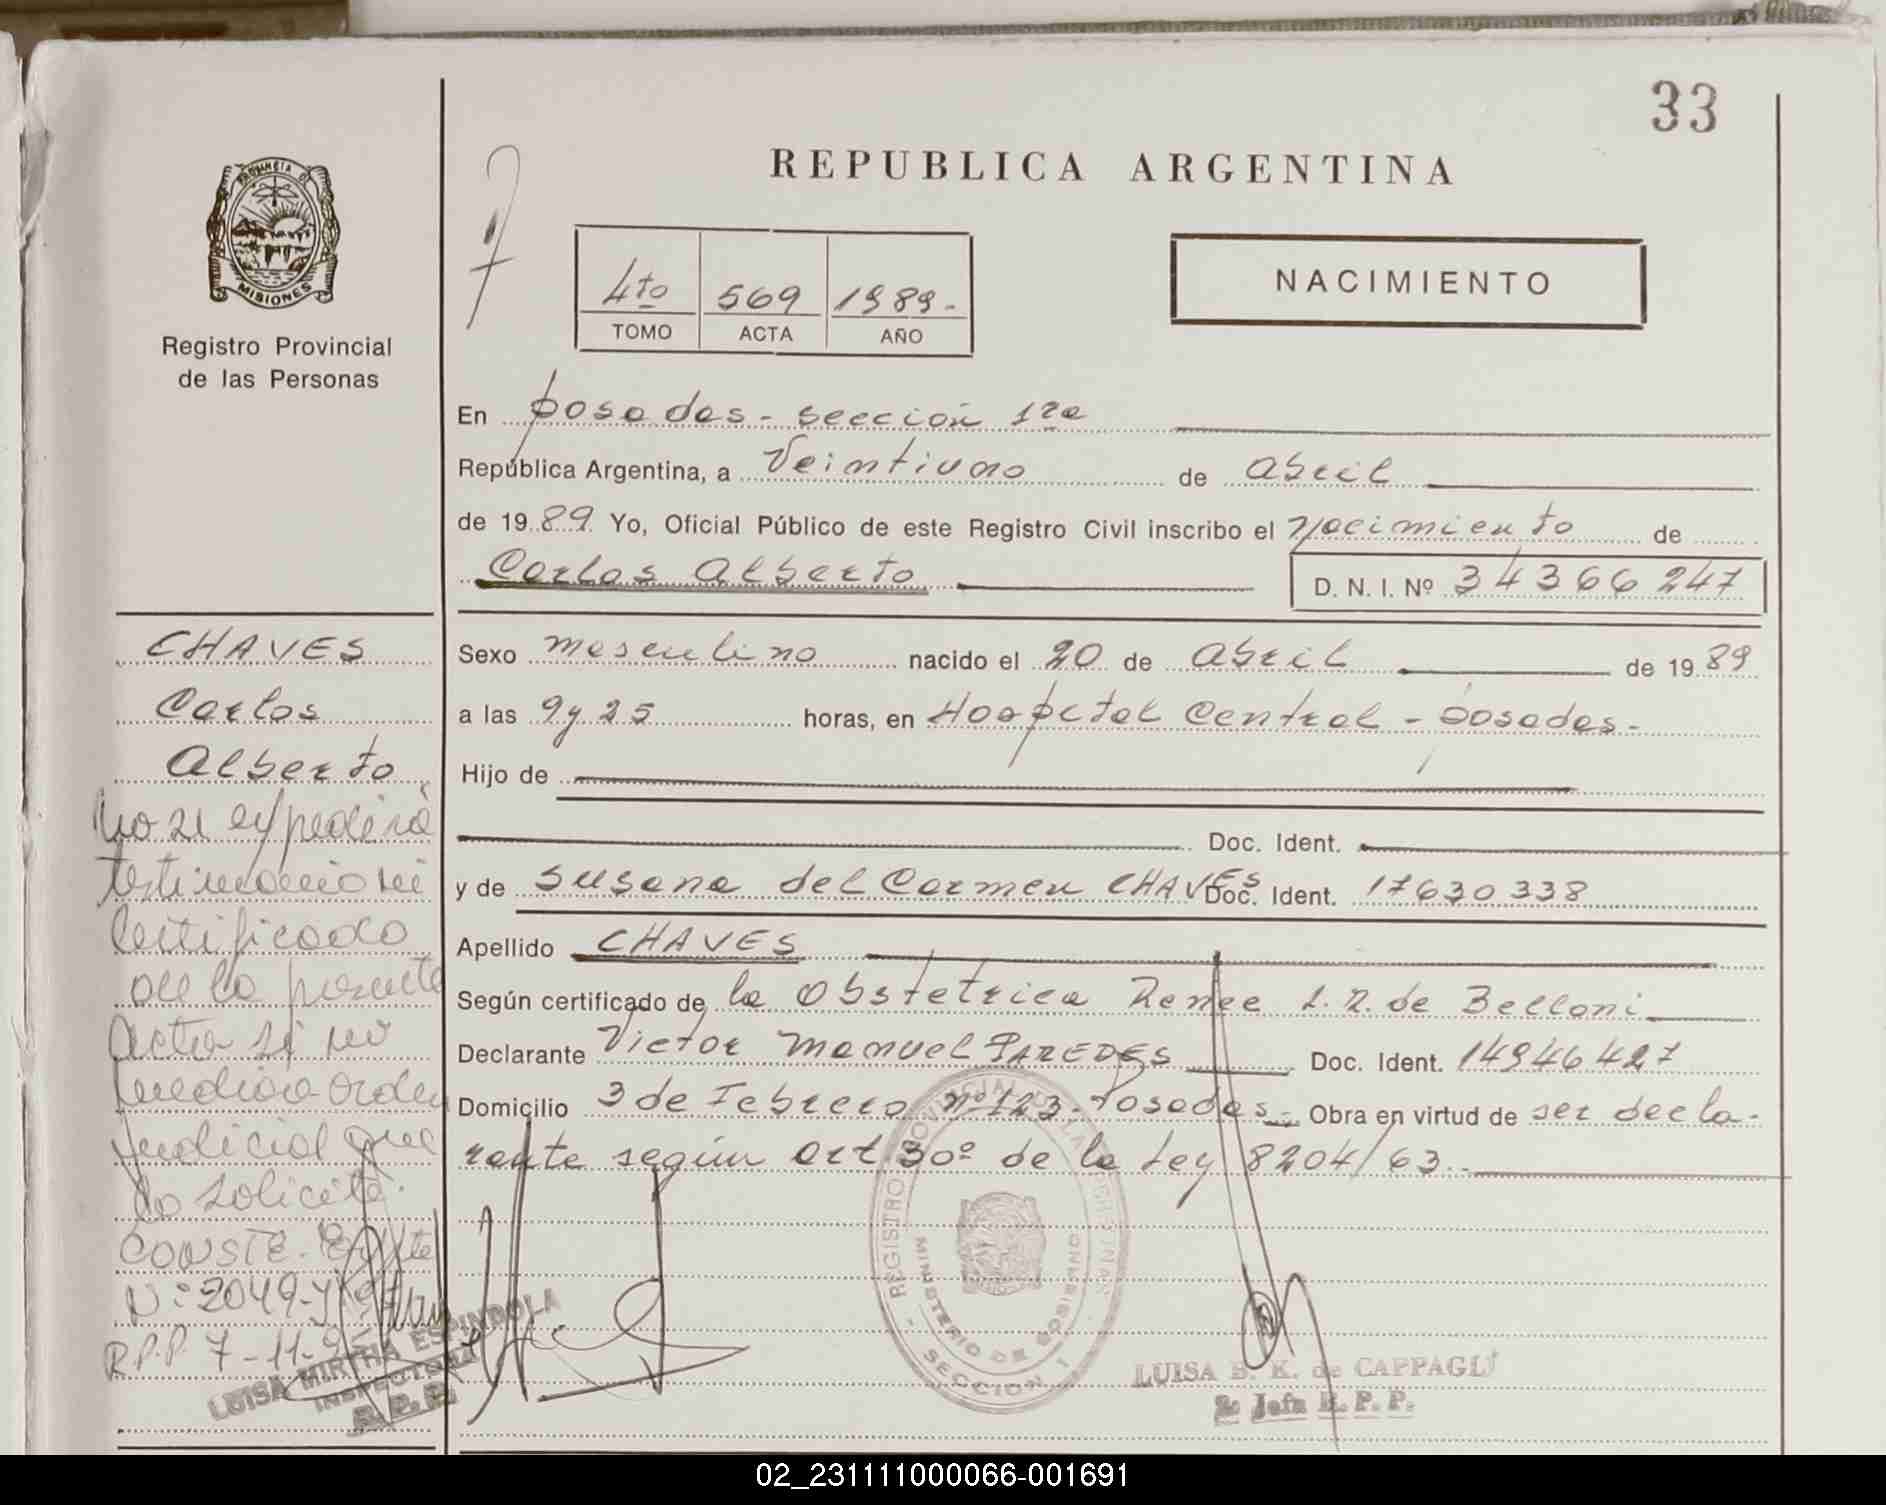 33
REPUBLICA ARGENTINA
PROVINCIA DE
MISIONES
Registro Provincial
de las Personas
4to 569 1989-
TOMO ACTA AÑO
NACIMIENTO
En Posadas - sección 1ra
República Argentina, a Veintiuno de abril
de 1989 Yo, Oficial Público de este Registro Civil inscribo el nacimiento de
Carlos Alberto
D. N. I. Nº 34366247
Sexo masculino nacido el 20 de abril de 1989
a las 9 y 25 horas, en Hospital Central - Posadas-
Hijo de
Doc. Ident.
y de Susana del Carmen CHAVES Doc. Ident. 17630338
Apellido CHAVES
Según certificado de la obstetrica Renee L. R. de Belloni
Declarante Victor Manuel PAREDES Doc. Ident. 14946427
Domicilio 3 de Febrero nº 123 - Posadas - Obra en virtud de ser decla-
rante según art. 30º de la Ley 8204/63
CHAVES
Carlos
Alberto
No se expedirá
testimonio ni
certificado
de la presente
acta si no
media orden
judicial que
lo solicite.
CONSTE. Expte
Nº: 2049-
R.P.P. 7-11-
LUISA MIRTHA ESPINDOLA
INSPECTORA
R. P. P.
REGISTRO PROVINCIAL DE LAS PERSONAS
MINISTERIO DE GOBIERNO
- SECCION 1 -
LUISA B. K. de CAPPAGLI
2º Jefa R. P. P.
02_231111000066-001691